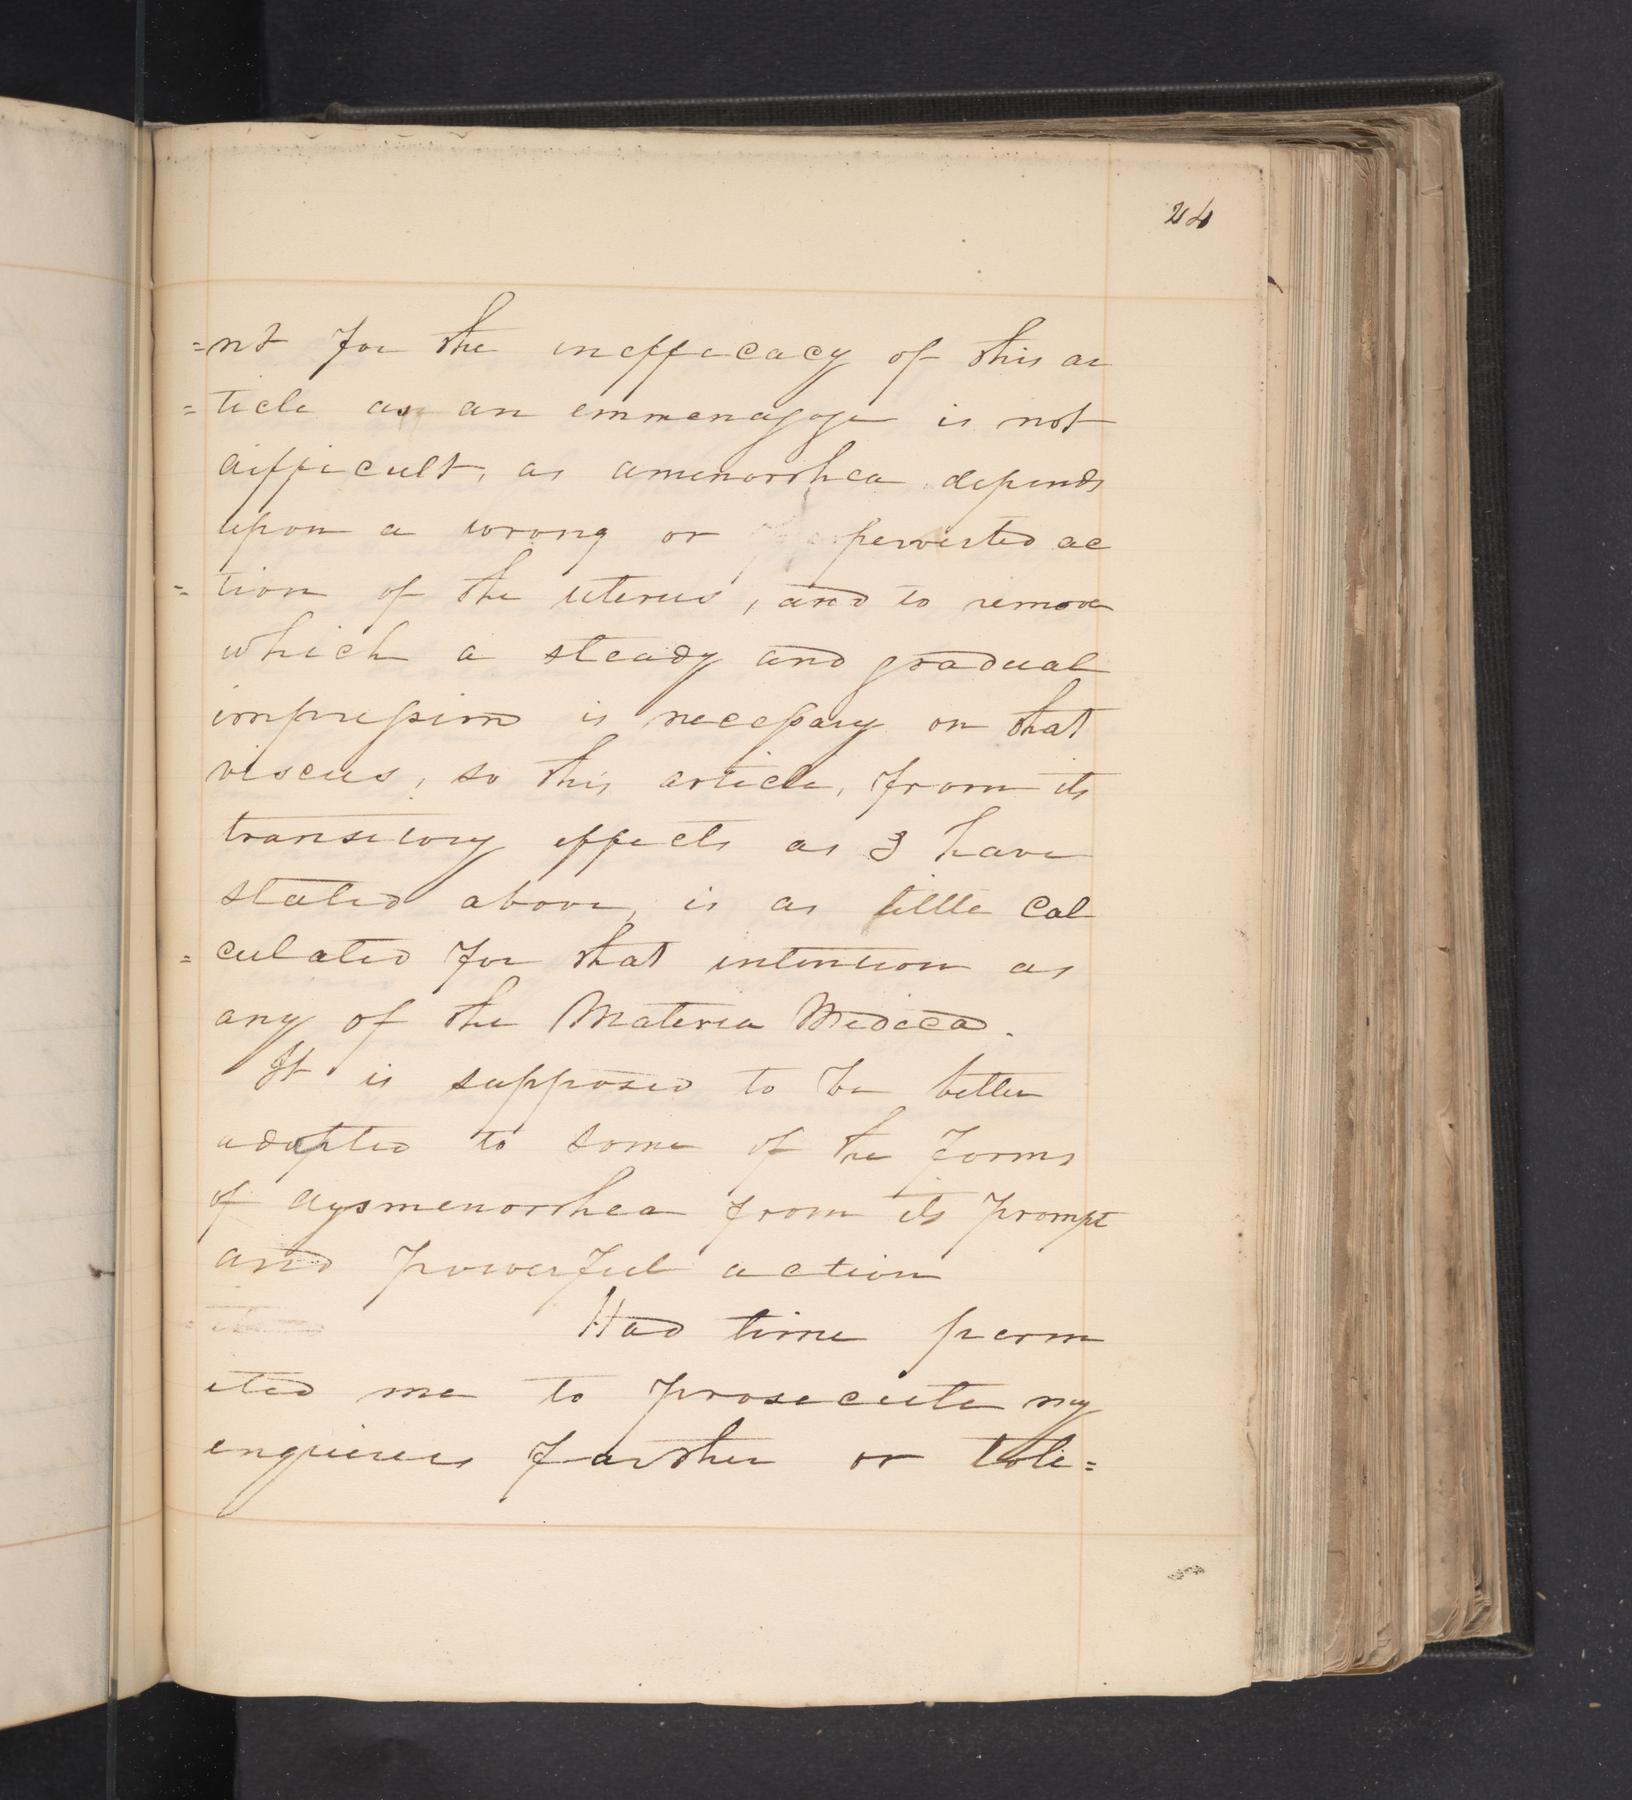 24
=nt for the inefficacy of this ar
=ticle as an emmenagoge is not
difficult, as amenorrhea depends
upon a wrong or perverted ac
=tion of the uterus, and to remove
which a steady and gradual
impression is necessary on that
viscus, so this article, from its
transitory effects as I have
stated above, is as little cal
=culated for that intention as
any of the Materia Medica.
It is supposed to be better
adapted to some of the forms
of dysmenorrhea from its prompt
and powerful action
Had time perm
ited me to prosecute my
enquiries farther or